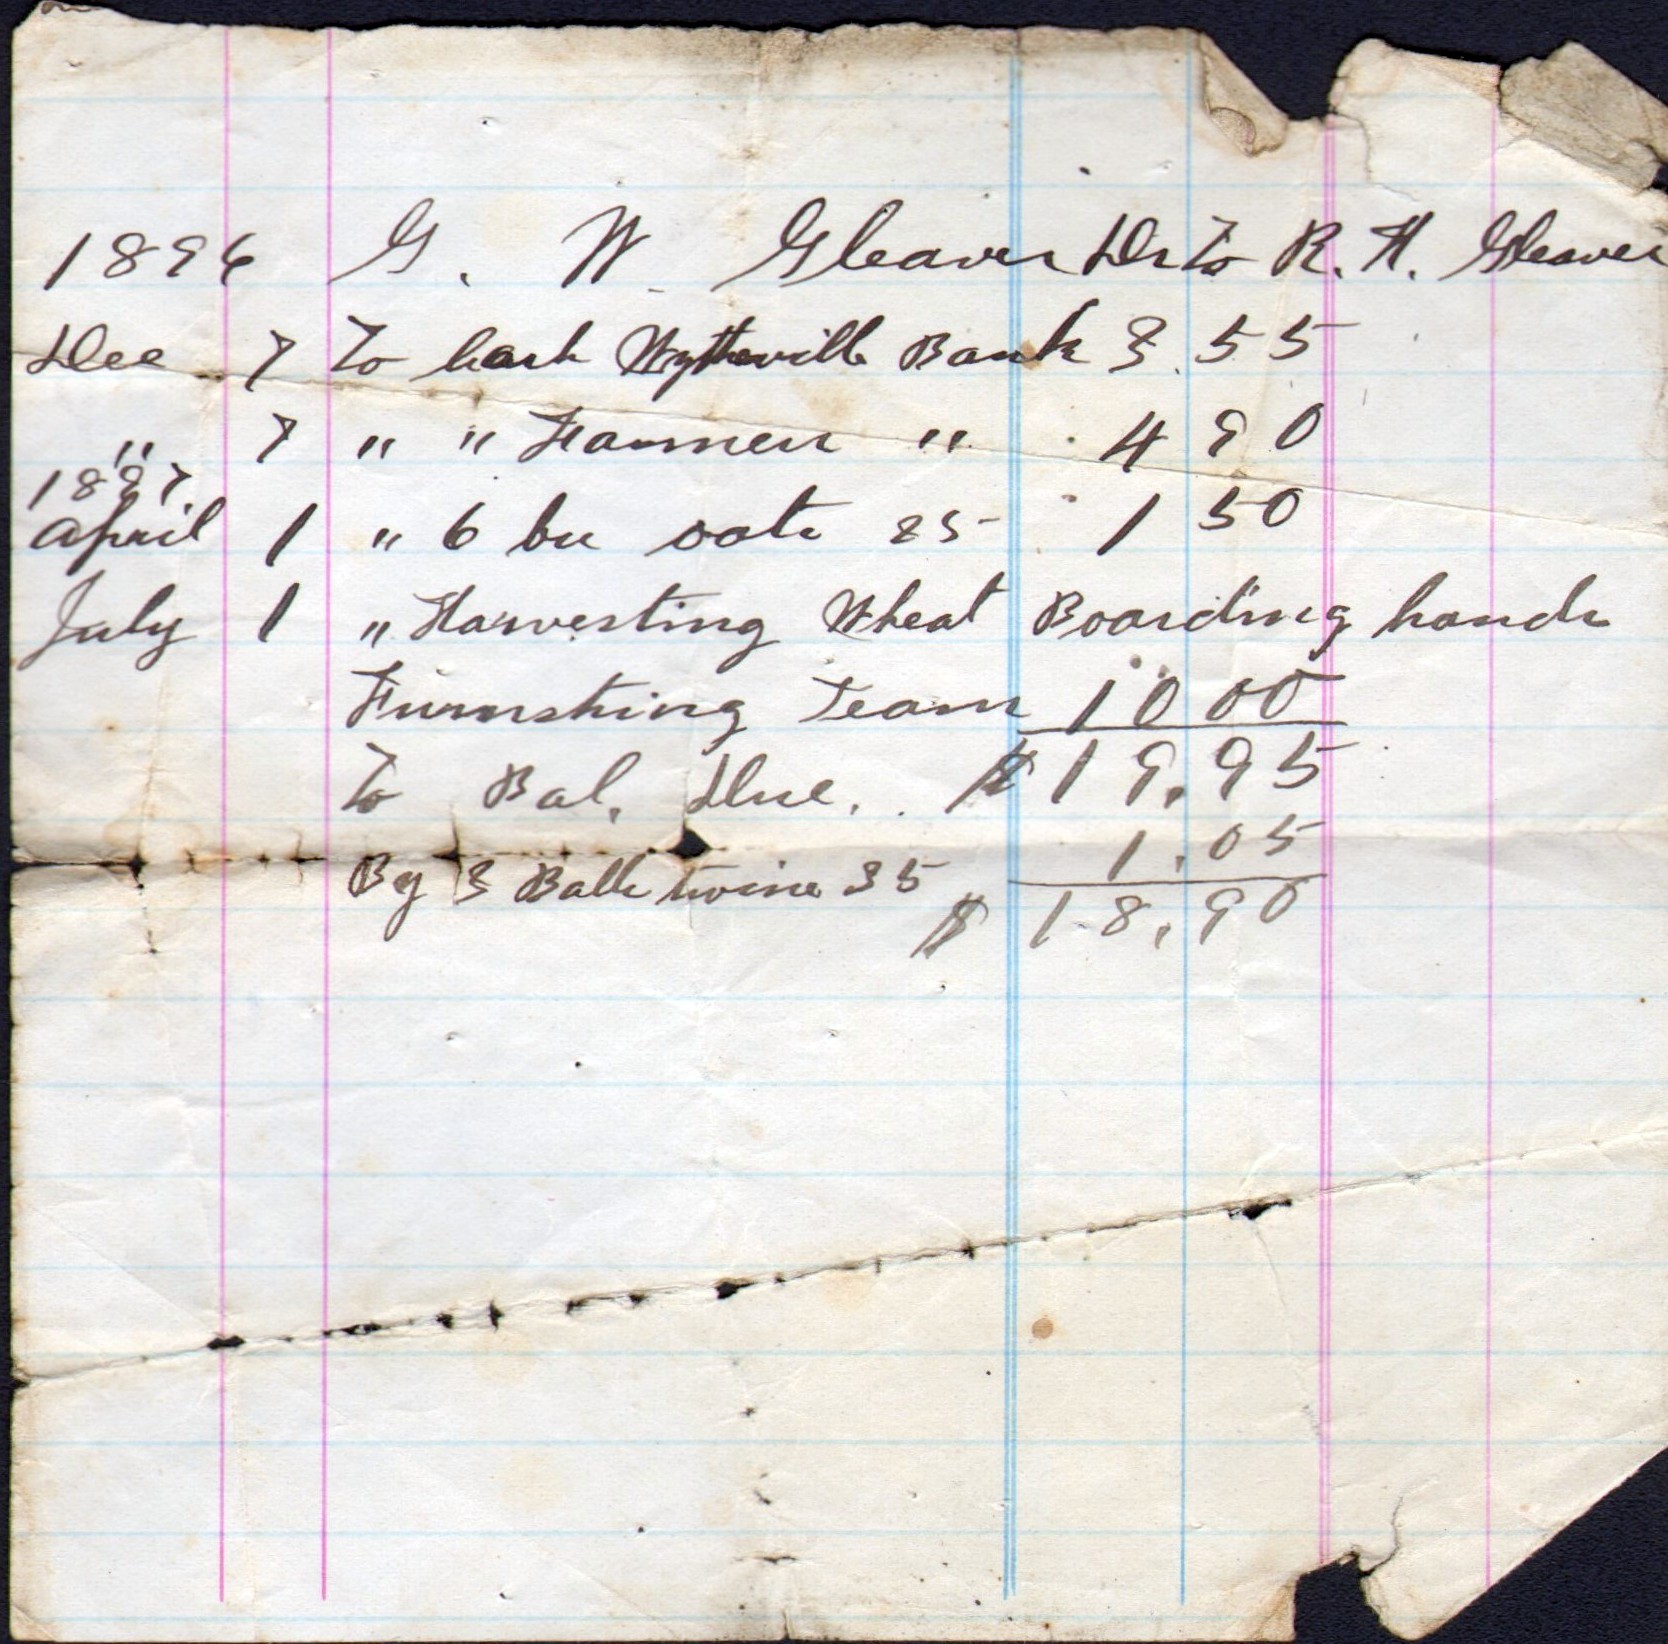 1896 G. W. Gleaves Dr To R. H. Gleaves
Dec 7 To Cash Wytheville Bank 3.55
" 7 " " Farmers " 4 90
1897
April 1 " 6 bu oats 25 1 50
July 1 " Harvesting Wheat Boarding hands
Furnishing Team 10 00
To Bal. Due. $19.95
By 3 Balls twine 35 1.05
$18.90